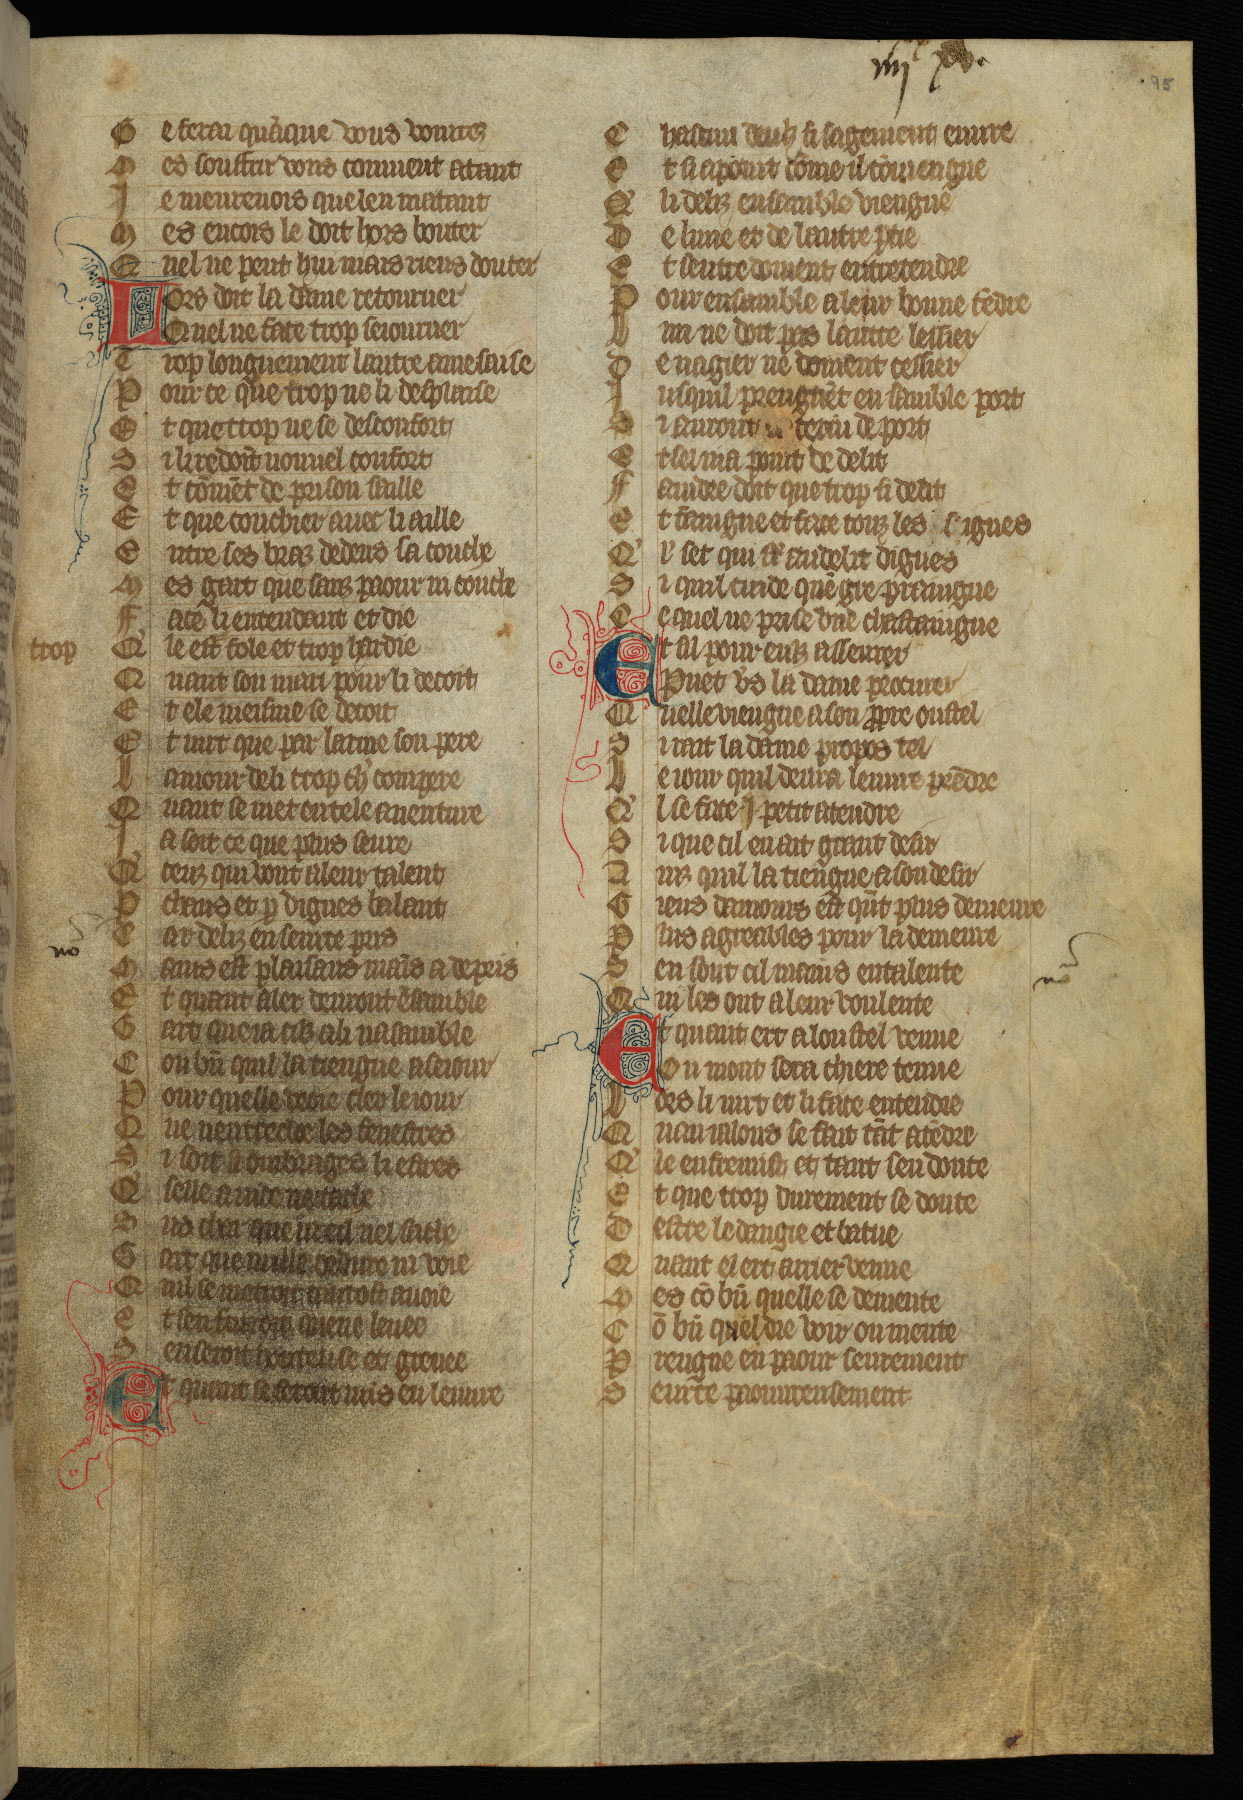 iiij xx xv.
95
G e ferai quāque vous vourrez
M es souffrir vous couuient atant
J e meurenois que len matant
M es encois le doit hors bouter
Q uel ne peut hui mais riens douter
Lors doit la dame retourner
Q uel ne face trop seiourner
T rop longuement lautre amesaise
P our ce que trop ne li desplaise
E t que trop ne se desconfort
S i li redoit nouuel confort
E t cōuiēt de prison saille
E t que couchier auec li aille
E ntre ses braz dedens sa couche
M es gart que sanz paour ni couche
F ace li entendant et die
Q' le est fole et trop hardie
trop
Q uant son mari pour li decoit
E t ele meisme se decoit
E t iurt que par larme son pere
L amour de li trop ch' compere
Q uant se met en tele auenture
J a soit ce que plus seure
Q' ceuz qui vont a leur talent
P chans et p vignes balant
C ar deliz en seurte pris
M ains est plaisans mais a depris
no
E t quant aler deuront ēsamble
G art que ia cilz a li nasamble
C ou bn̄ quil la tiengue a seiour
P our quelle veoie cler le iour
Q ue nentrecloe les fenestres
S i soit si ombrages li estres
Q' selle a
S us char que
G art que nulle ordure ni voie
Q uil se metroit tantost auoie
E t sen
S en seroit honteuse et greuee
Et quant se seront mis en leuure
C hascun deulz si sagement euure
E t si apoint cōme il cōuiengne
Q' li deliz ensamble viengne
D e lune et de lautre ptie
E t sentredoiuent entretendre
P our ensamble a leur bonne tēdre
L un ne doit pas lautre lessier
D e nagier ne doiuent cessier
J usquil prengnēt ensamble port
S i auront deport
E t sel ni a point de delit
F aindre doit que trop si delit
E t faingne et face touz les signes
Q' l' set qui s̄t au delit dignes
S i quil cuide quē gre praingne
C e quel ne prise vne chastaingne
Et sil pour euls asseurer
P uet vs̄ la dame procurer
Q uelle viengne a son ppre oustel
S i rait la dame propos tel
L e iour quil deura leuure prēdre
Q' l se face j petit atendre
S i que cil en ait grant desir
A inz quil la tiengne a son desir
G ieus damours est qn̄t plus demeure
P lus agreables pour la demeure
S en sont cil mains entalente
no
Q ui les ont a leur voulente
Et quant ert a loustel venue
O u mout sera chiere tenue
L ors li iurt et li face entendre
Q uau ialous se fait tāt atēdre
Q' le en fremist et tant sen doute
E t que trop durement se doute
D estre ledangie et batue
Q uant el ert arrier venue
M es cō bn̄ quelle se demente
C ō bn̄ quel die voir ou mente
P rengne en paour seurement
S eurte paoureusement